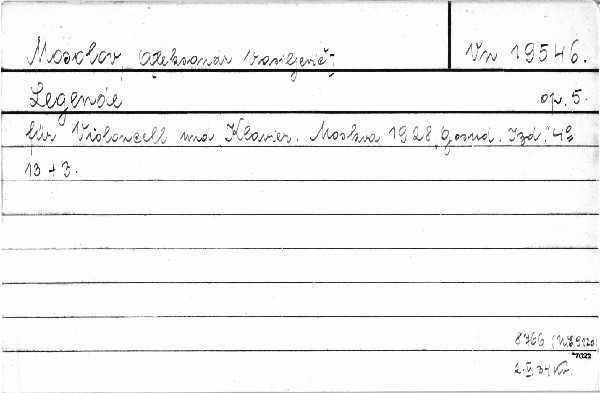 Mosolov, Aleksandr Vasiljevič, Vn 19546.
Legende op. 5.
für Violoncell und Klavier. Moskva 1928 „Gosud. Izd." 4º
13 + 3.
8766 (U.E. 9120)
7022
2. V. 34 Kr.